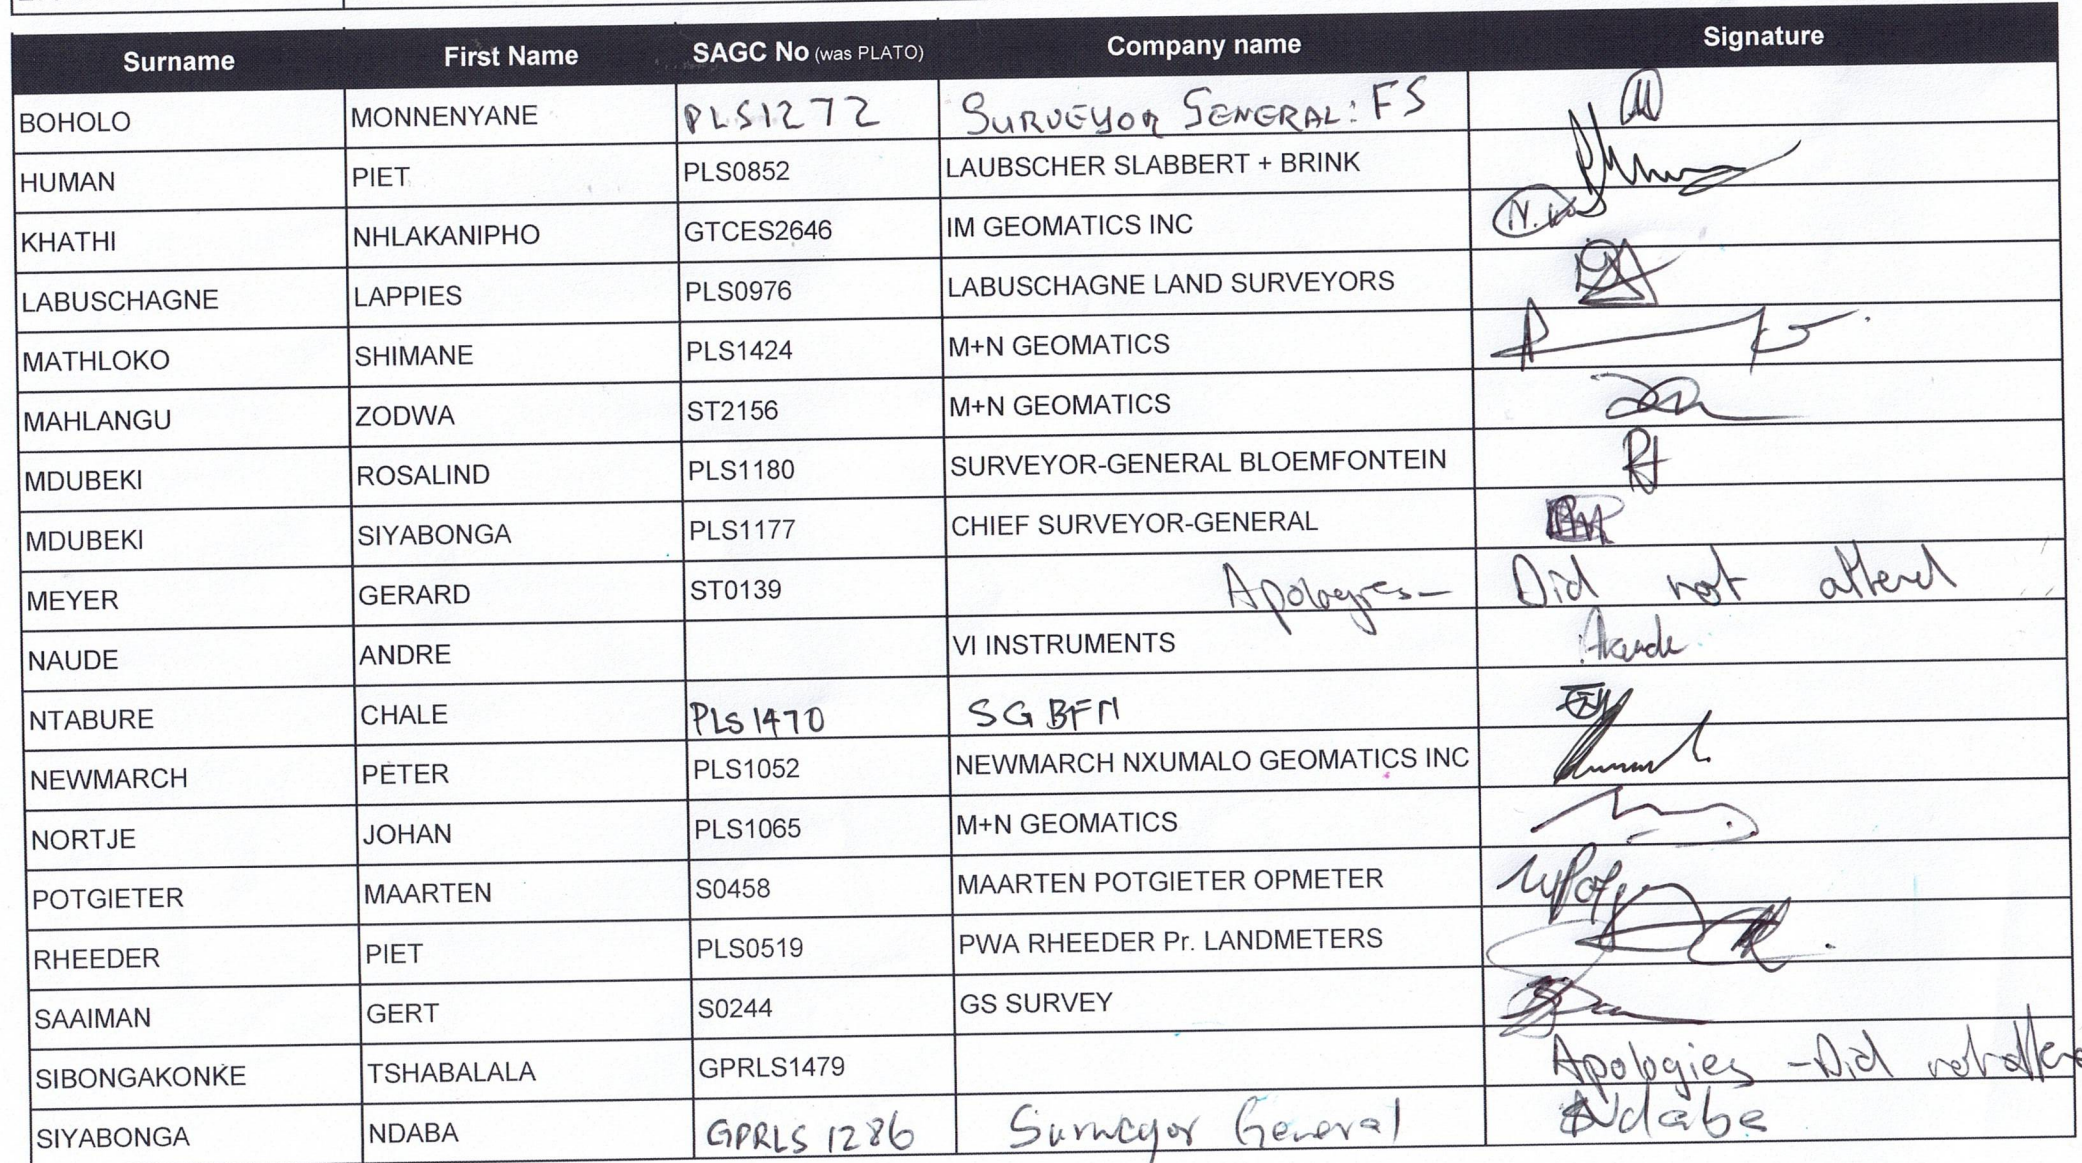 Surname First Name SAGC No (was PLATO) Company name Signature
BOHOLO MONNENYANE PLS1272 SURVEYOR GENERAL: FS
HUMAN PIET PLS0852 LAUBSCHER SLABBERT + BRINK
KHATHI NHLAKANIPHO GTCES2646 IM GEOMATICS INC
LABUSCHAGNE LAPPIES PLS0976 LABUSCHAGNE LAND SURVEYORS
MATHLOKO SHIMANE PLS1424 M+N GEOMATICS
MAHLANGU ZODWA ST2156 M+N GEOMATICS
MDUBEKI ROSALIND PLS1180 SURVEYOR-GENERAL BLOEMFONTEIN
MDUBEKI SIYABONGA PLS1177 CHIEF SURVEYOR-GENERAL
MEYER GERARD ST0139 Apologies - Did not attend
NAUDE ANDRE VI INSTRUMENTS
NTABURE CHALE PLS1470 SG BFN
NEWMARCH PETER PLS1052 NEWMARCH NXUMALO GEOMATICS INC
NORTJE JOHAN PLS1065 M+N GEOMATICS
POTGIETER MAARTEN S0458 MAARTEN POTGIETER OPMETER
RHEEDER PIET PLS0519 PWA RHEEDER Pr. LANDMETERS
SAAIMAN GERT S0244 GS SURVEY
SIBONGAKONKE TSHABALALA GPRLS1479 Apologies - Did not
SIYABONGA NDABA GPRLS 1286 Surveyor General Ndaba